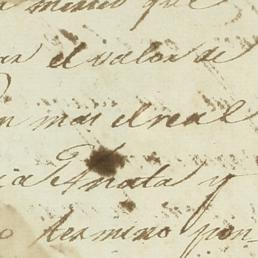 mismo que
el valor de
mas el real
Anata y
termino por